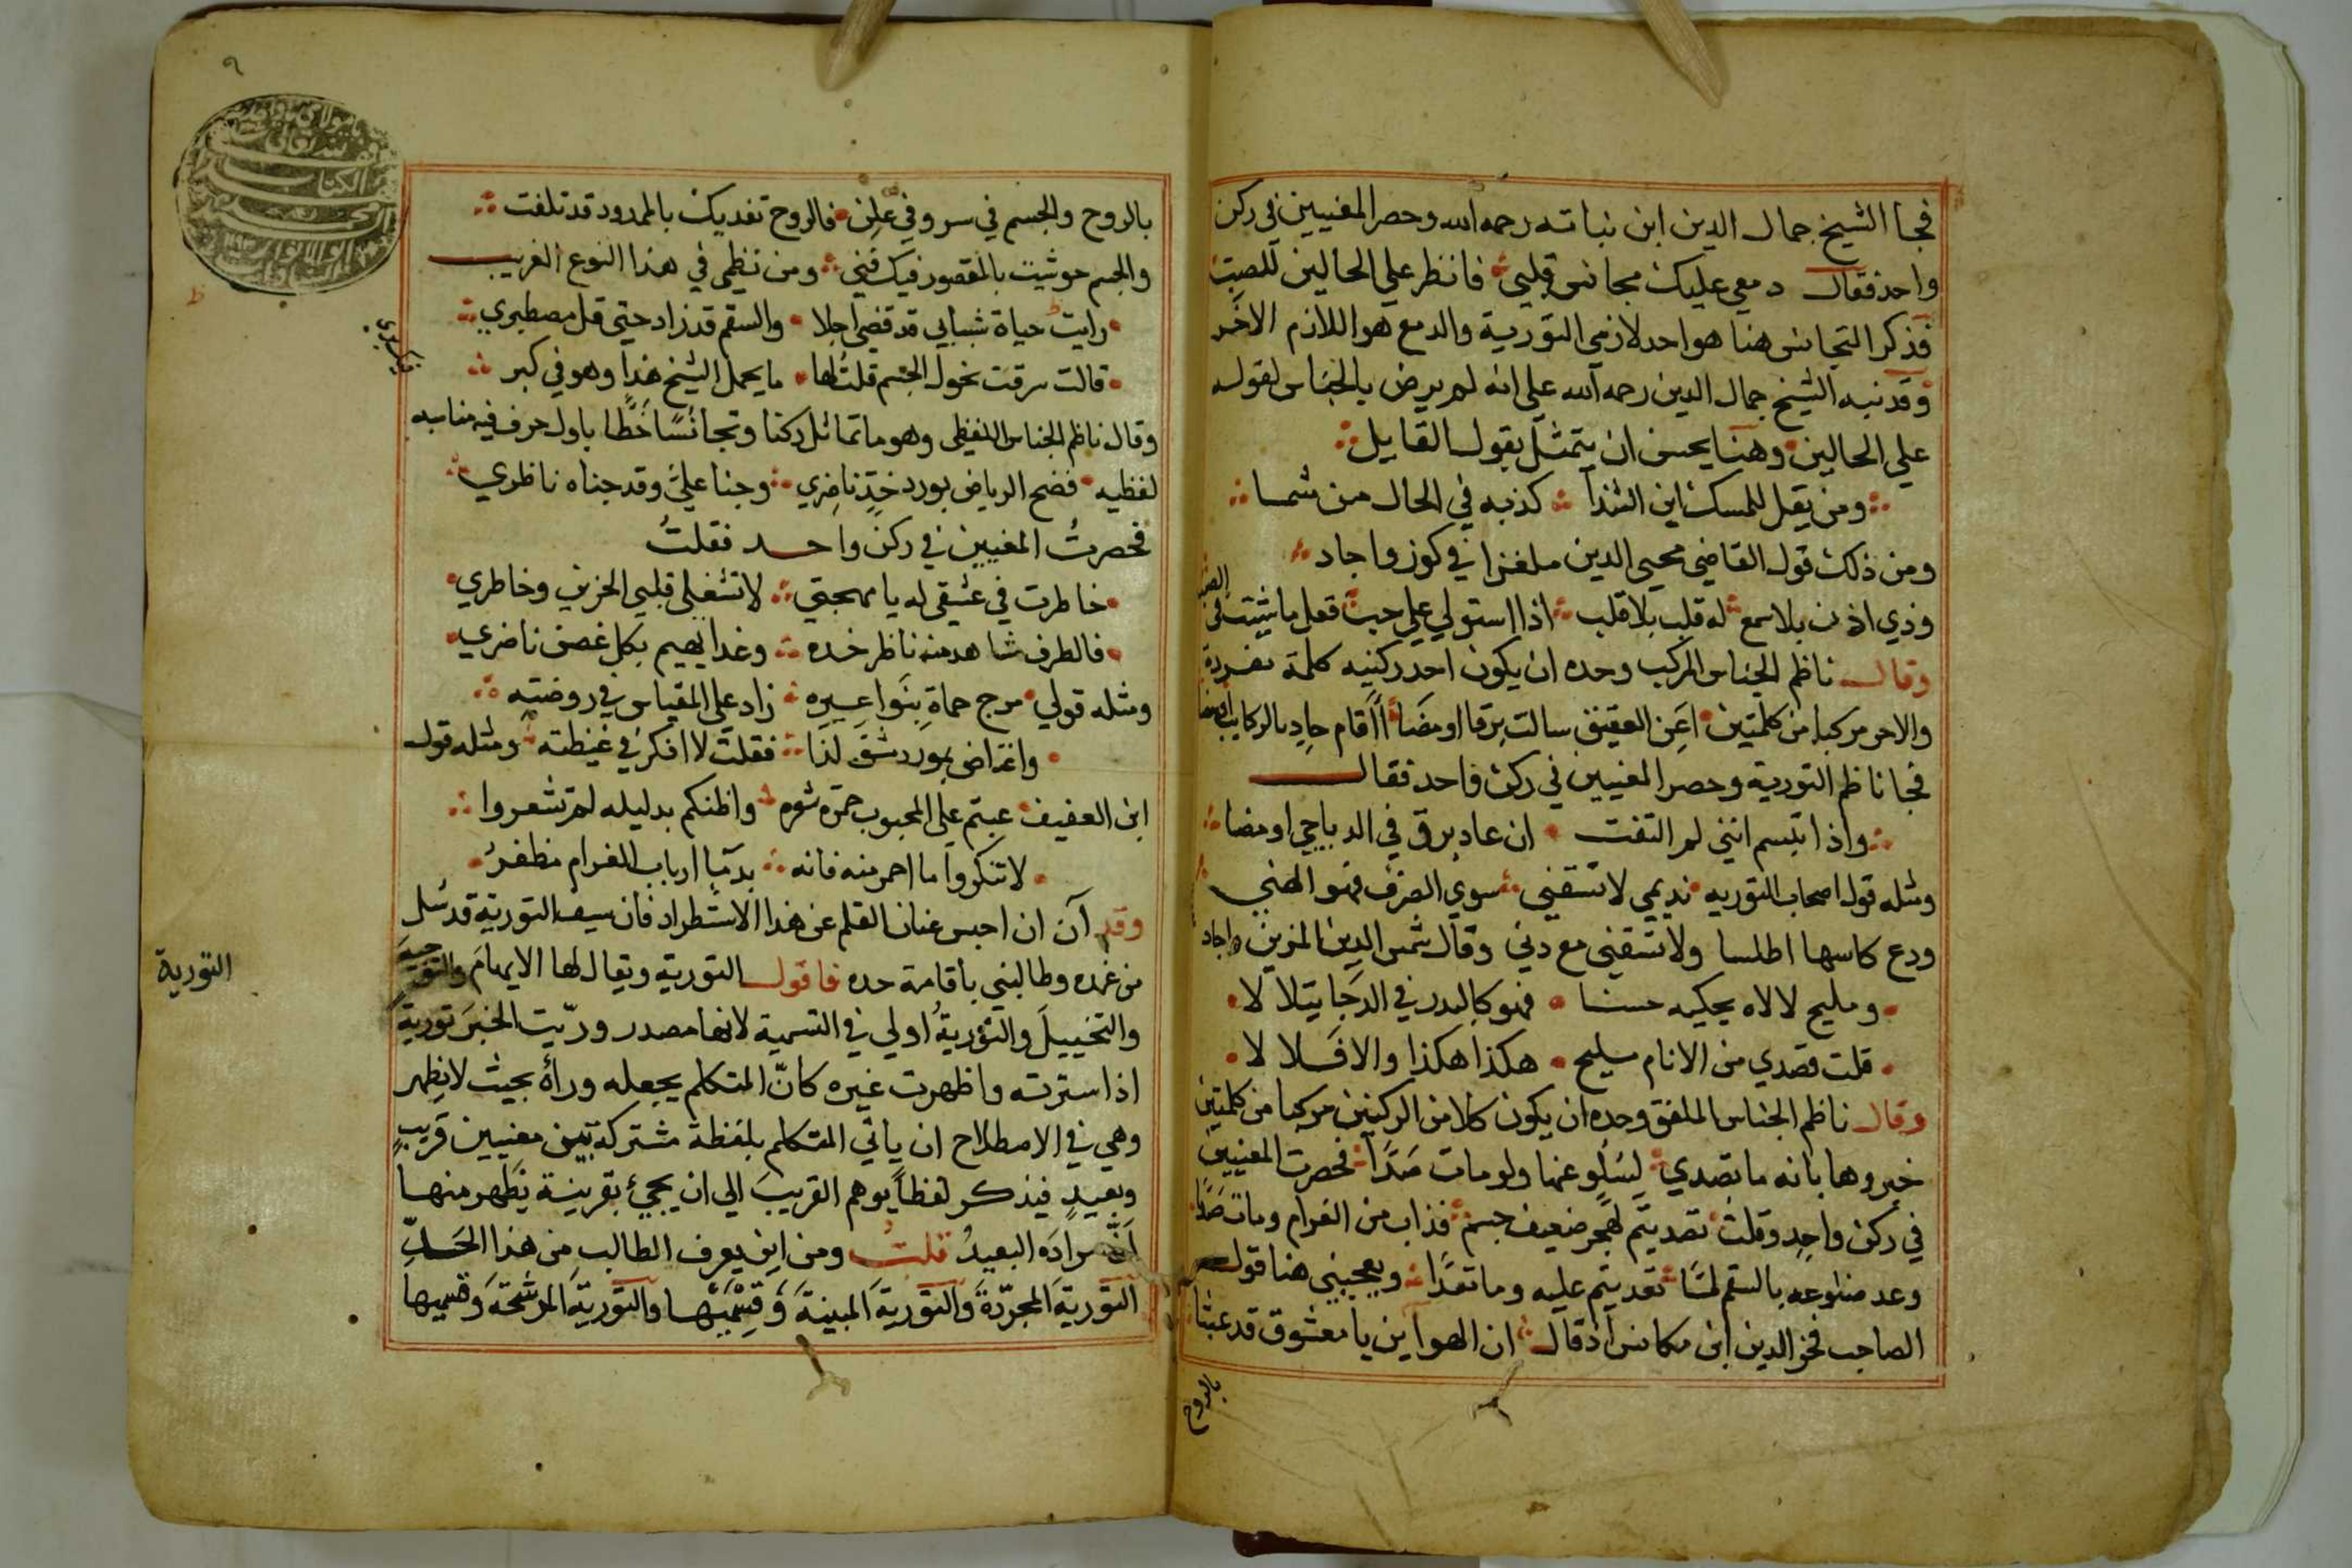 فجا الشيخ جمال الدين ابن نباته رحمه الله وحصر المغنيين في ركن
واحد فقال دمعي عليك مجانس قلبي فانظر علي الحالين للصبت
فذكر التجانس هنا هو احد لازمي التورية والدمع هو اللازم الاخر
وقد نبه الشيخ جمال الدين رحمه الله علي انه لم يرض بالجناس لقوله
علي الحالين وهنا يحسن ان يتمثل بقول القايل
ومن يقل للمسك اين الشذا كذبه في الحال من شما
ومن ذلك قول القاضي محيي الدين ملغزا في كوز واجاد
وذي اذن بلا سمع له قلب بلا قلب اذا استولي علي حب فقل ما شيت في
الصب
وقال ناظم الجناس المركب وحده ان يكون احد ركنيه كلمة مفردة
والاخر مركبا من كلمتين اعن العقيق سالت برقا اومضا أأقام حاد بالركايب اومضا
فجا ناظم التورية وحصر المعنيين في ركن واحد فقال
واذا تبسم انني لم التفت ان عاد برق في الدياجي اومضا
ومثله قول اصحاب التوريه نديمي لا تسقني سوي الصرف فهو الهني
ودع كاسها اطلسا ولا تسقني مع دني وقال شمس الدين المزين واجاد
ومليح لالاه يحكيه حسنا فهو كالبدر في الدجا يتلالا
قلت قصدي من الانام مليح هكذا هكذا والا فلا لا
وقال ناظم الجناس الملفق وحده ان يكون كلا من الركنين مركبا من كلمتين
خبروها بانه ما تصدي لسلو عنها ولو مات صدا فحصرت المعنيين
في ركن واحد وقلت تصديتم لهجر ضعيف جسم فذاب من الغرام ومات صدا
وعد ضلوعه بالسقم لما تعديتم عليه وما تعدا ويعجبني هنا قول
الصاحب فخر الدين ابن مكانس اذ قال ان الهواين يا معشوق قد عبثا
بالروح
بالروح والجسم في سر وفي علن فالروح تفديك بالممدود قد تلفت
والجسم حوشيت بالمقصور فيك فني ومن نظمي في هذا النوع الغريب
رايت حياة شبابي قد قضي اجلا والسقم قد زاد حتي قل مصطبري
قالت سرقت نحول الجسم قلت لها ما يحمل الشيخ هذا وهو في كبر
وقال ناظم الجناس اللفظي وهو ما تماثل ركنا وتجانسا خطا باول حرف فيه مناسبه
لفظيه فضح الرياض بورد خد ناضري وجنا علي وقد جناه ناظري
فحصرت المعنيين في ركن واحد فقلت
خاطرت في عشقي له يا مهجتي لا تشغلي قلبي الحزين وخاطري
فالطرف شاهد منه ناظر خده وغدا يهيم بكل غصن ناضري
ومثله قولي مرج حماة بنواعيره زاد علي المقياس في روضته
واغتاض بورد شق لذا فقلت لا افكر في غيظته ومثله قول
ابن العفيف عبتم علي المحبوب حمرة شعره واظنكم بدليله لم تشعروا
لا تنكروا ما احمر منه فانه بدما ارباب الغرام مظفر
وقد آن ان احبس عنان القلم عن هذا الاستطراد فان سيف التورية قد سل
من غمده وطالبني باقامة حده فاقول التورية ويقال لها الايهام والتوجيه
والتخييل والتورية اولي في التسمية لانها مصدر وريت الخبر تورية
اذا سترته واظهرت غيره كان المتكلم يجعله وراه بحيث لا يظهر
وهي في الاصطلاح ان ياتي المتكلم بلفظة مشتركة بين معنيين قريب
وبعيد فيذكر لفظا يوهم القريب الي ان يجئ بقرينة يظهر منها
ان مراده البعيد قلت ومن اين يعرف الطالب من هذا الحد
التورية المجردة والتورية المبينة وقسميها والتورية المرشحة وقسميها
التورية